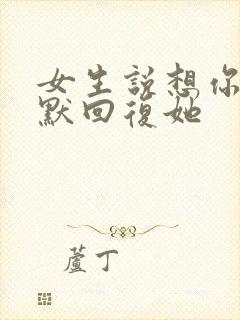 女生說想你
默回復她
蘆丁